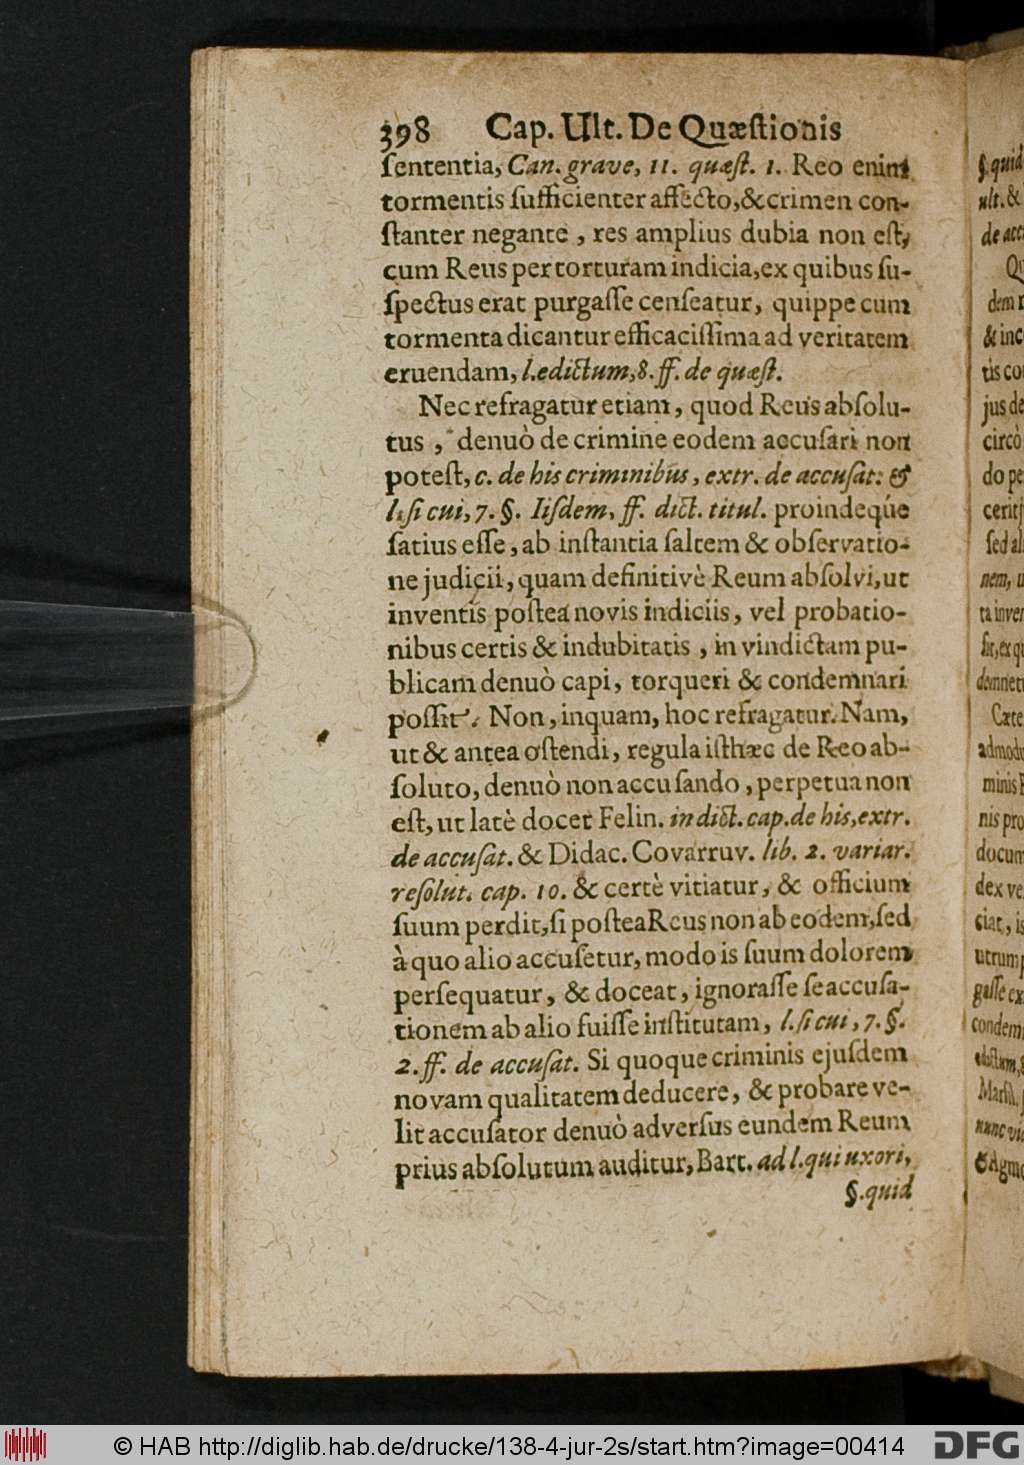 398 Cap. Ult. De Quæſtionis
ſententia, Can. grave, 11. quæſt. 1. Reo enim
tormentis ſufficienter affecto, & crimen con-
ſtanter negante, res amplius dubia non eſt,
cum Reus per torturam indicia, ex quibus ſu-
ſpectus erat purgaſſe cenſeatur, quippe cum
tormenta dicantur efficaciſſima ad veritatem
eruendam, l. edictum, 8. ff. de quæſt.
Nec refragatur etiam, quod Reus abſolu-
tus, denuò de crimine eodem accuſari non
poteſt, c. de his criminibus, extr. de accuſat: &
l. ſi cui, 7. §. Iiſdem, ff. dict. titul. proindeque
ſatius eſſe, ab inſtantia ſaltem & obſervatio-
ne judicii, quam definitivè Reum abſolvi, ut
inventis poſtea novis indiciis, vel probatio-
nibus certis & indubitatis, in vindictam pu-
blicam denuò capi, torqueri & condemnari
poſſit. Non, inquam, hoc refragatur. Nam,
ut & antea oſtendi, regula iſthæc de Reo ab-
ſoluto, denuò non accuſando, perpetua non
eſt, ut latè docet Felin. in dict. cap. de his, extr.
de accuſat. & Didac. Covarruv. lib. 2. variar.
reſolut. cap. 10. & certè vitiatur, & officium
ſuum perdit, ſi poſtea Reus non ab eodem, ſed
à quo alio accuſetur, modo is ſuum dolorem
perſequatur, & doceat, ignoraſſe ſe accuſa-
tionem ab alio fuiſſe inſtitutam, l. ſi cui, 7. §.
2. ff. de accuſat. Si quoque criminis ejuſdem
novam qualitatem deducere, & probare ve-
lit accuſator denuò adverſus eundem Reum
prius abſolutum auditur, Bart. ad l. qui uxori,
§. quid
§. quid
ult. &
de acc
Qu
dem
& inc
tis co
jus de
circò
do pe
cerit
ſed al
nem, u
ta inver
ſit, ex q
demnet
Cæte
admod
minis
nis pro
docum
dex ve
ciat, is
utrum
gaſſe ex
condem
nunc
© HAB http://diglib.hab.de/drucke/138-4-jur-2s/start.htm?image=00414 DFG